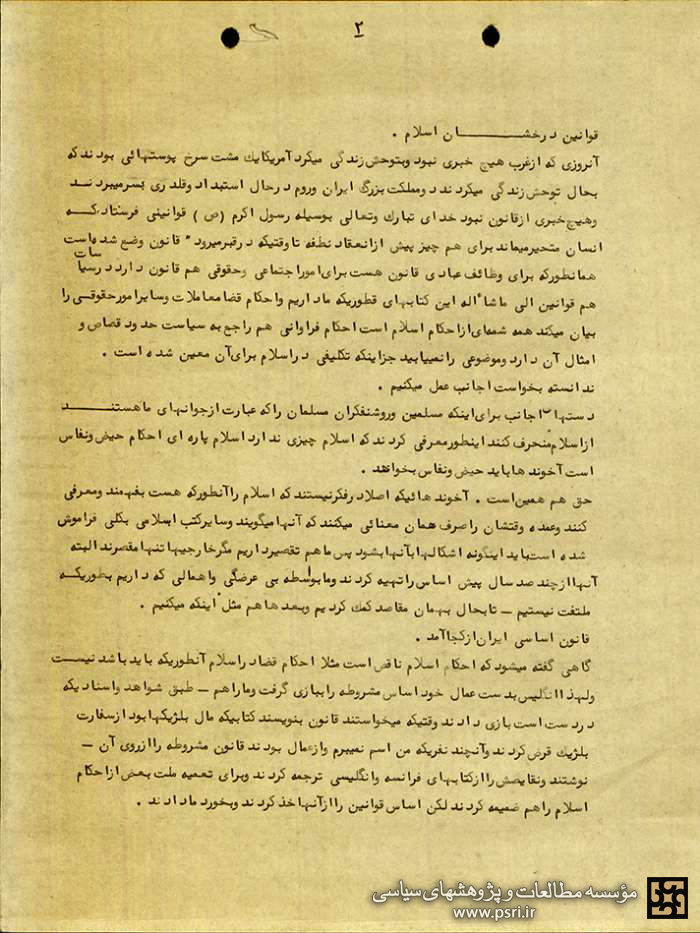 ۲
قوانین درخشـــــــان اسلام .
آنروزی که ازغرب هیچ خبری نبود وبتوحش زندگی میکرد آمریکایك مشت سرخ پوستهائی بودندکه
بحال توحش زندگی میکردند دومملکت بزرگ ایران وروم درحال استبداد وقلدری بسرمیبردنـــد
وهیچ خبری ازقانون نبود خدای تبارك وتعالی بوسیله رسول اکرم ( ص ) قوانینی فرستادکـــه
انسان متحیرمیماند برای هم چیز پیش ازانعقاد نطفه تاوقتیکه درقبرمیرود قانون وضع شده است
همانطورکه برای وظائف عبادی قانون هست برای امور اجتماعی وحقوقی هم قانون دارد درسیاسات
هم قوانین الی ماشاءاله این کتابهای قطوریکه ماداریم واحکام قضا معاملات وسایرامورحقوقـی را
بیان میکند همه شمه‌ای ازاحکام اسلام است احکام فراوانی هم راجع به سیاست حدود قصاص و
امثال آن دارد وموضوعی رانمییابید جزاینکه تکلیفی دراسلام برای آن معین شده است .
ندانسته بخواست اجانب عمل میکنیم .
دستهاء اجانب برای اینکه مسلمین وروشنفکران مسلمان راکه عبارت ازجوانهای ماهستنــــد
ازاسلام منحرف کنند اینطورمعرفی کردند که اسلام چیزی ندارد اسلام پاره ای احکام حیض ونفاس
است آخوند هاباید حیض ونفاس بخوانند .
حق هم همین است . آخوند هائیکه اصلا درفکرنیستند که اسلام راآنطورکه هست بفهمند ومعرفی
کنند وعمده وقتشان راصرف همان معنائی میکنند که آنها میگویند وسایرکتب اسلامی بکلی فراموش
شده است باید اینگونه اشکالها بآنها بشود پس ماهم تقصیرداریم مگرخارجیها تنها مقصرند البته
آنها ازچند صد سال پیش اساس راتهیه کردند ومابواسطه بی عرضگی واهمالی که داریم بطوریکـه
ملتفت نیستیم ـ تابحال بهمان مقاصد کمك کردیم وبعدهاهم مثل اینکه میکنیم .
قانون اساسی ایران ازکجاآمد .
گاهی گفته میشود که احکام اسلام ناقص است مثلا احکام قضا دراسلام آنطوریکه باید باشد نیســت
ولهذا انگلیس بدست عمال خود اساس مشروطه رابازی گرفت وماراهم ـ طبق شواهد واسنادیکه
دردست است بازی دادند وقتیکه میخواستند قانون بنویسند کتابیکه مال بلژیکها بود ازسفارت
بلژیك قرض کردند وآنچند نفریکه من اسم نمیبرم وازعمال بودند قانون مشروطه راازروی آن ـ
نوشتند ونقایصش راازکتابهای فرانسه وانگلیسی ترجمه کردند وبرای تعمیه ملت بعض ازاحکام
اسلام راهم ضمیمه کردند لکن اساس قوانین راازآنها اخذ کردند وبخورد مادادند .
مؤسسه مطالعات و پژوهشهای سیاسی
www.psri.ir